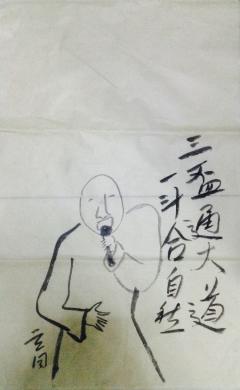 三盃通大道
一斗合自然